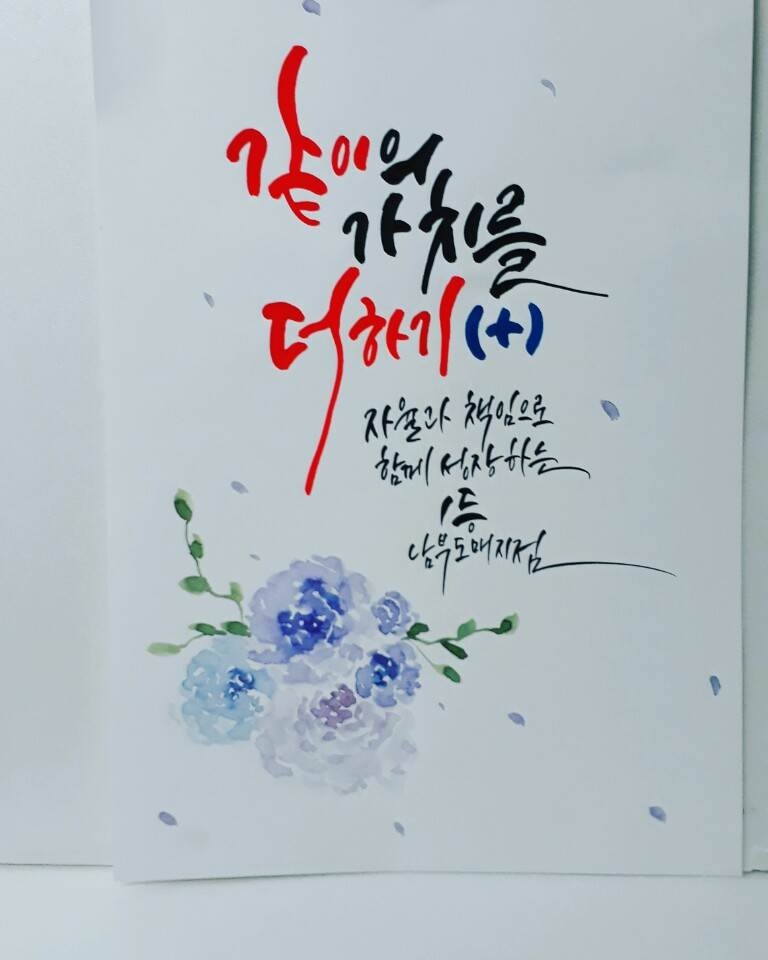 같이의
가치를
더하기(+)
자율과 책임으로
함께 성장하는
1등
남부도매지점